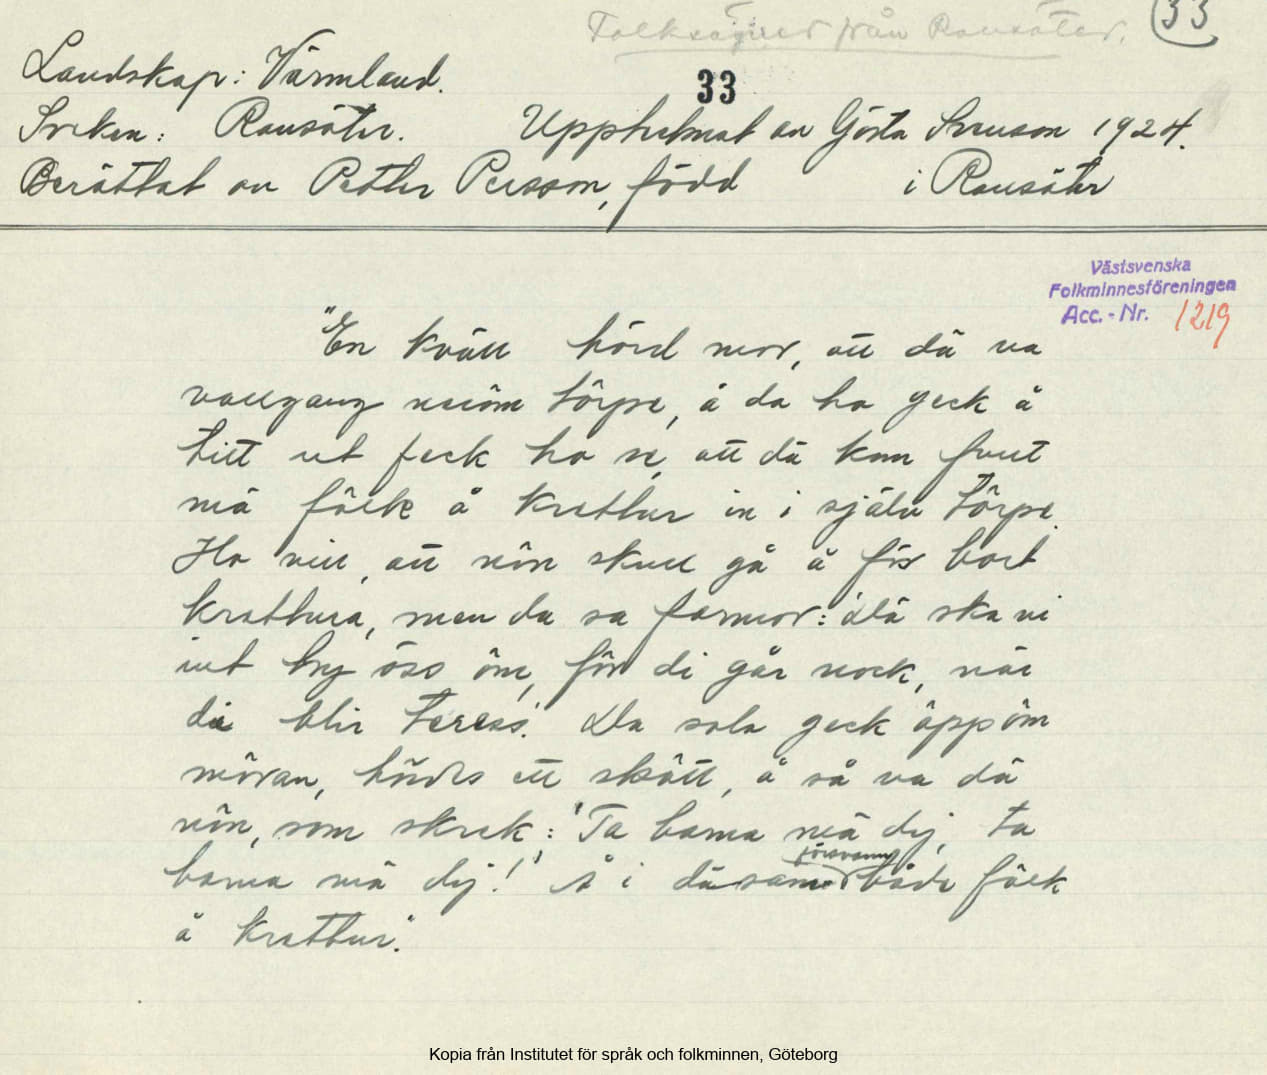 Folksägner från Ransäter.
33
Landskap: Värmland.
33
Socken: Ransäter. Upptecknat av Gösta Svenson 1924.
Berättat av Petter Persson, född i Ransäter
Västsvenska
Folkminnesföreningen
Acc. - Nr. 1219
"En kväll hörd mor, att dä va
vallgang neiöm törpe, å da ho geck å
titt ut feck ho se, att dä kom fullt
mä fôlk å krettur in i själv tôrpe.
Ho vill, att nôn skull gå å för bort
krettura, men da sa farmor: 'Dä ska vi
int bry öss ôm, för di går nock, när
dä blir teress'. Da sola geck ôppôm
môran, hördes ett skôtt, å så va dä
nôn, som skrek: 'Ta barna mä dej, ta
barna mä dej!' Å i däsamm försvann både fôlk
å krettur."
Kopia från Institutet för språk och folkminnen, Göteborg